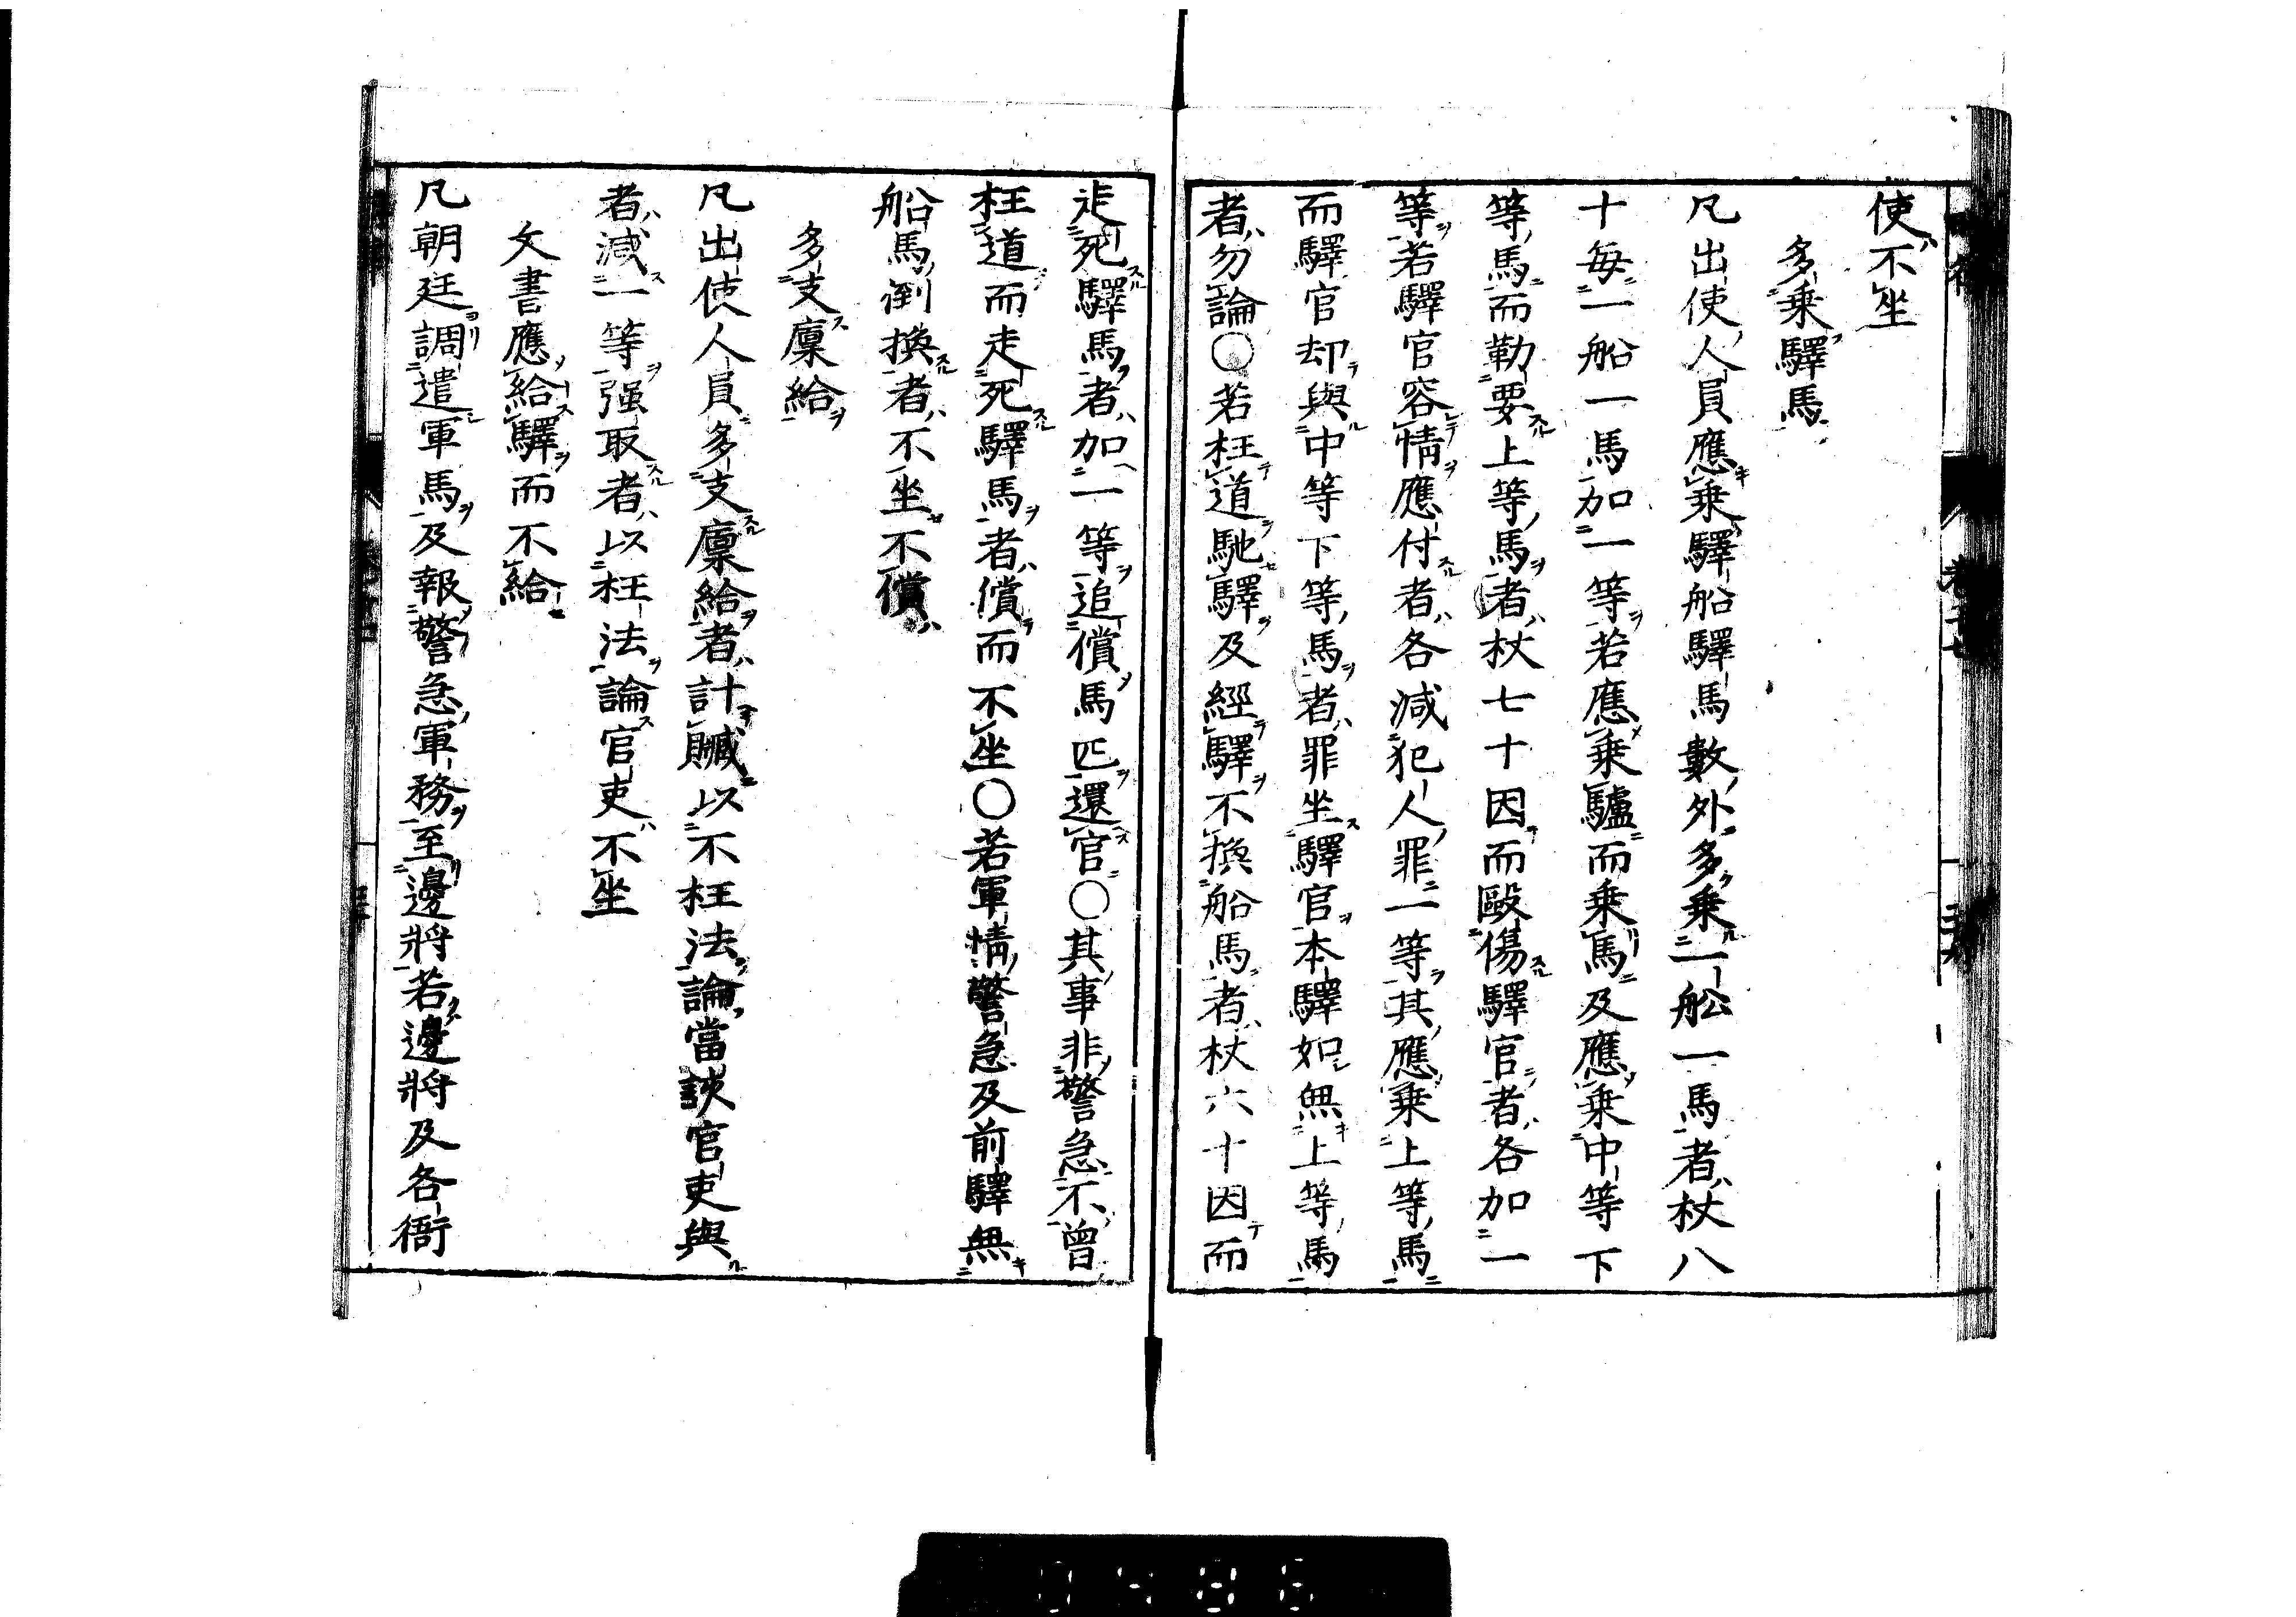 使不坐
多乗驛馬
凡出使人員應乗驛船驛馬數外多乗一舩一馬者杖八
十每一船一馬加一等若應乗驢而乗馬及應乗中等下
等馬而勒要上等馬者杖七十因而毆傷驛官者各加一
等若驛官容情應付者各減犯人罪一等其應乗上等馬
而驛官却與中等下等馬者罪坐驛官本驛如無上等馬
者勿論○若枉道馳驛及經驛不換船馬者杖六十因而
走死驛馬者加一等追償馬匹還官○其事非警急不曾
枉道而走死驛馬者償而不坐○若軍情警急及前驛無
船馬倒換者不坐不償
多支廩給
凡出使人員多支廩給者計贓以不枉法論當該官吏與
者減一等强取者以枉法論官吏不坐
文書應給驛而不給
凡朝廷調遣軍馬及報警急軍務至邊將若邊將及各衙